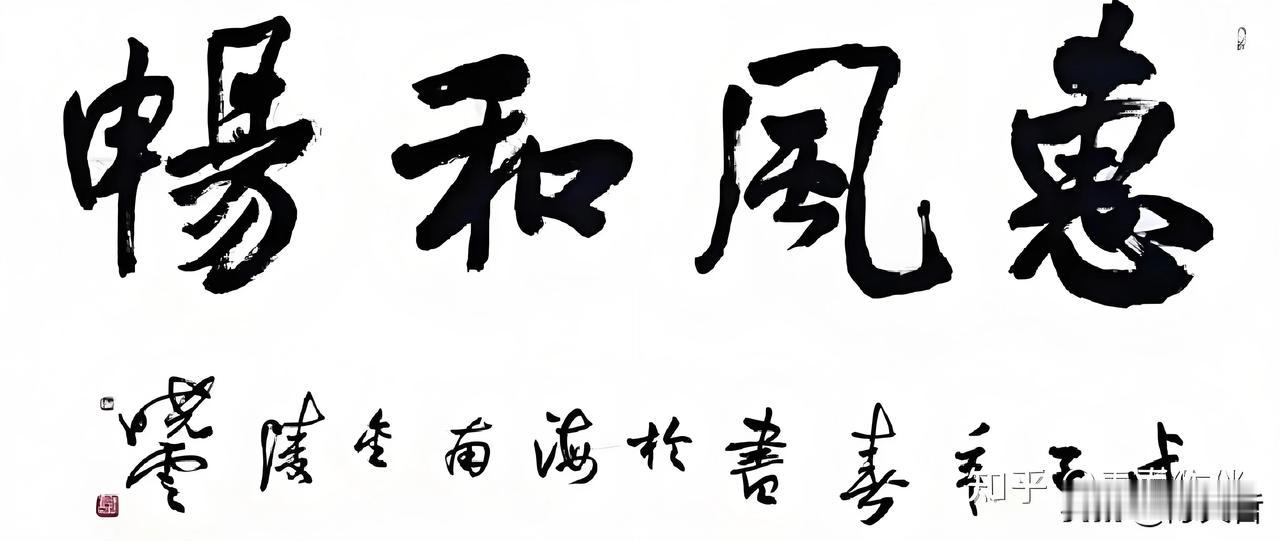 惠風和暢
春書於海南金陵
曉雲
知乎